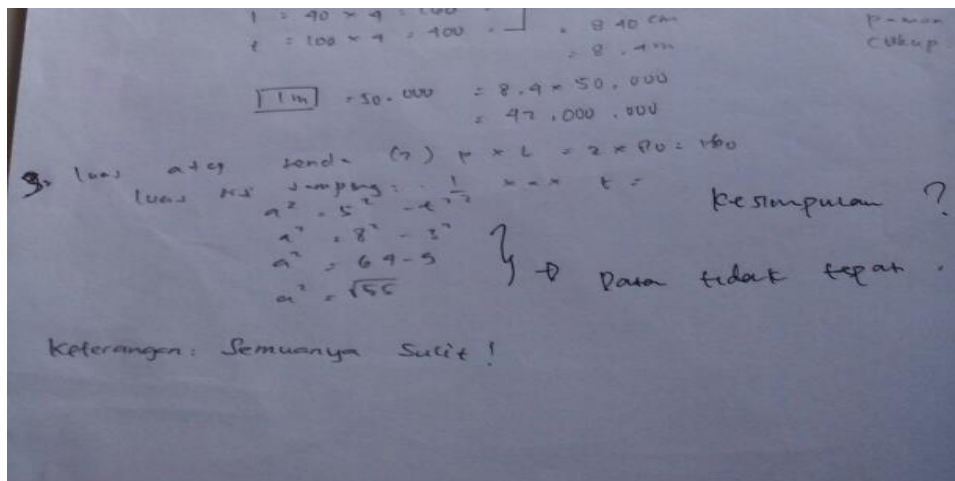 l = 40 × 4 = 160
t = 100 × 4 = 400 = 840 cm
= 8.4 m
Paman
cukup
1 m = 50.000 = 8.4 × 50.000
= 42.000.000
3. luas atap tenda (2) p × L = 2 × 80 = 160
luas sisi samping = 1/2 × a × t =
a² = 5² - t²
a² = 8² - 3²
a² = 64 - 9
a² = √55
Kesimpulan ?
Data tidak tepat.
Keterangan: Semuanya Sulit!